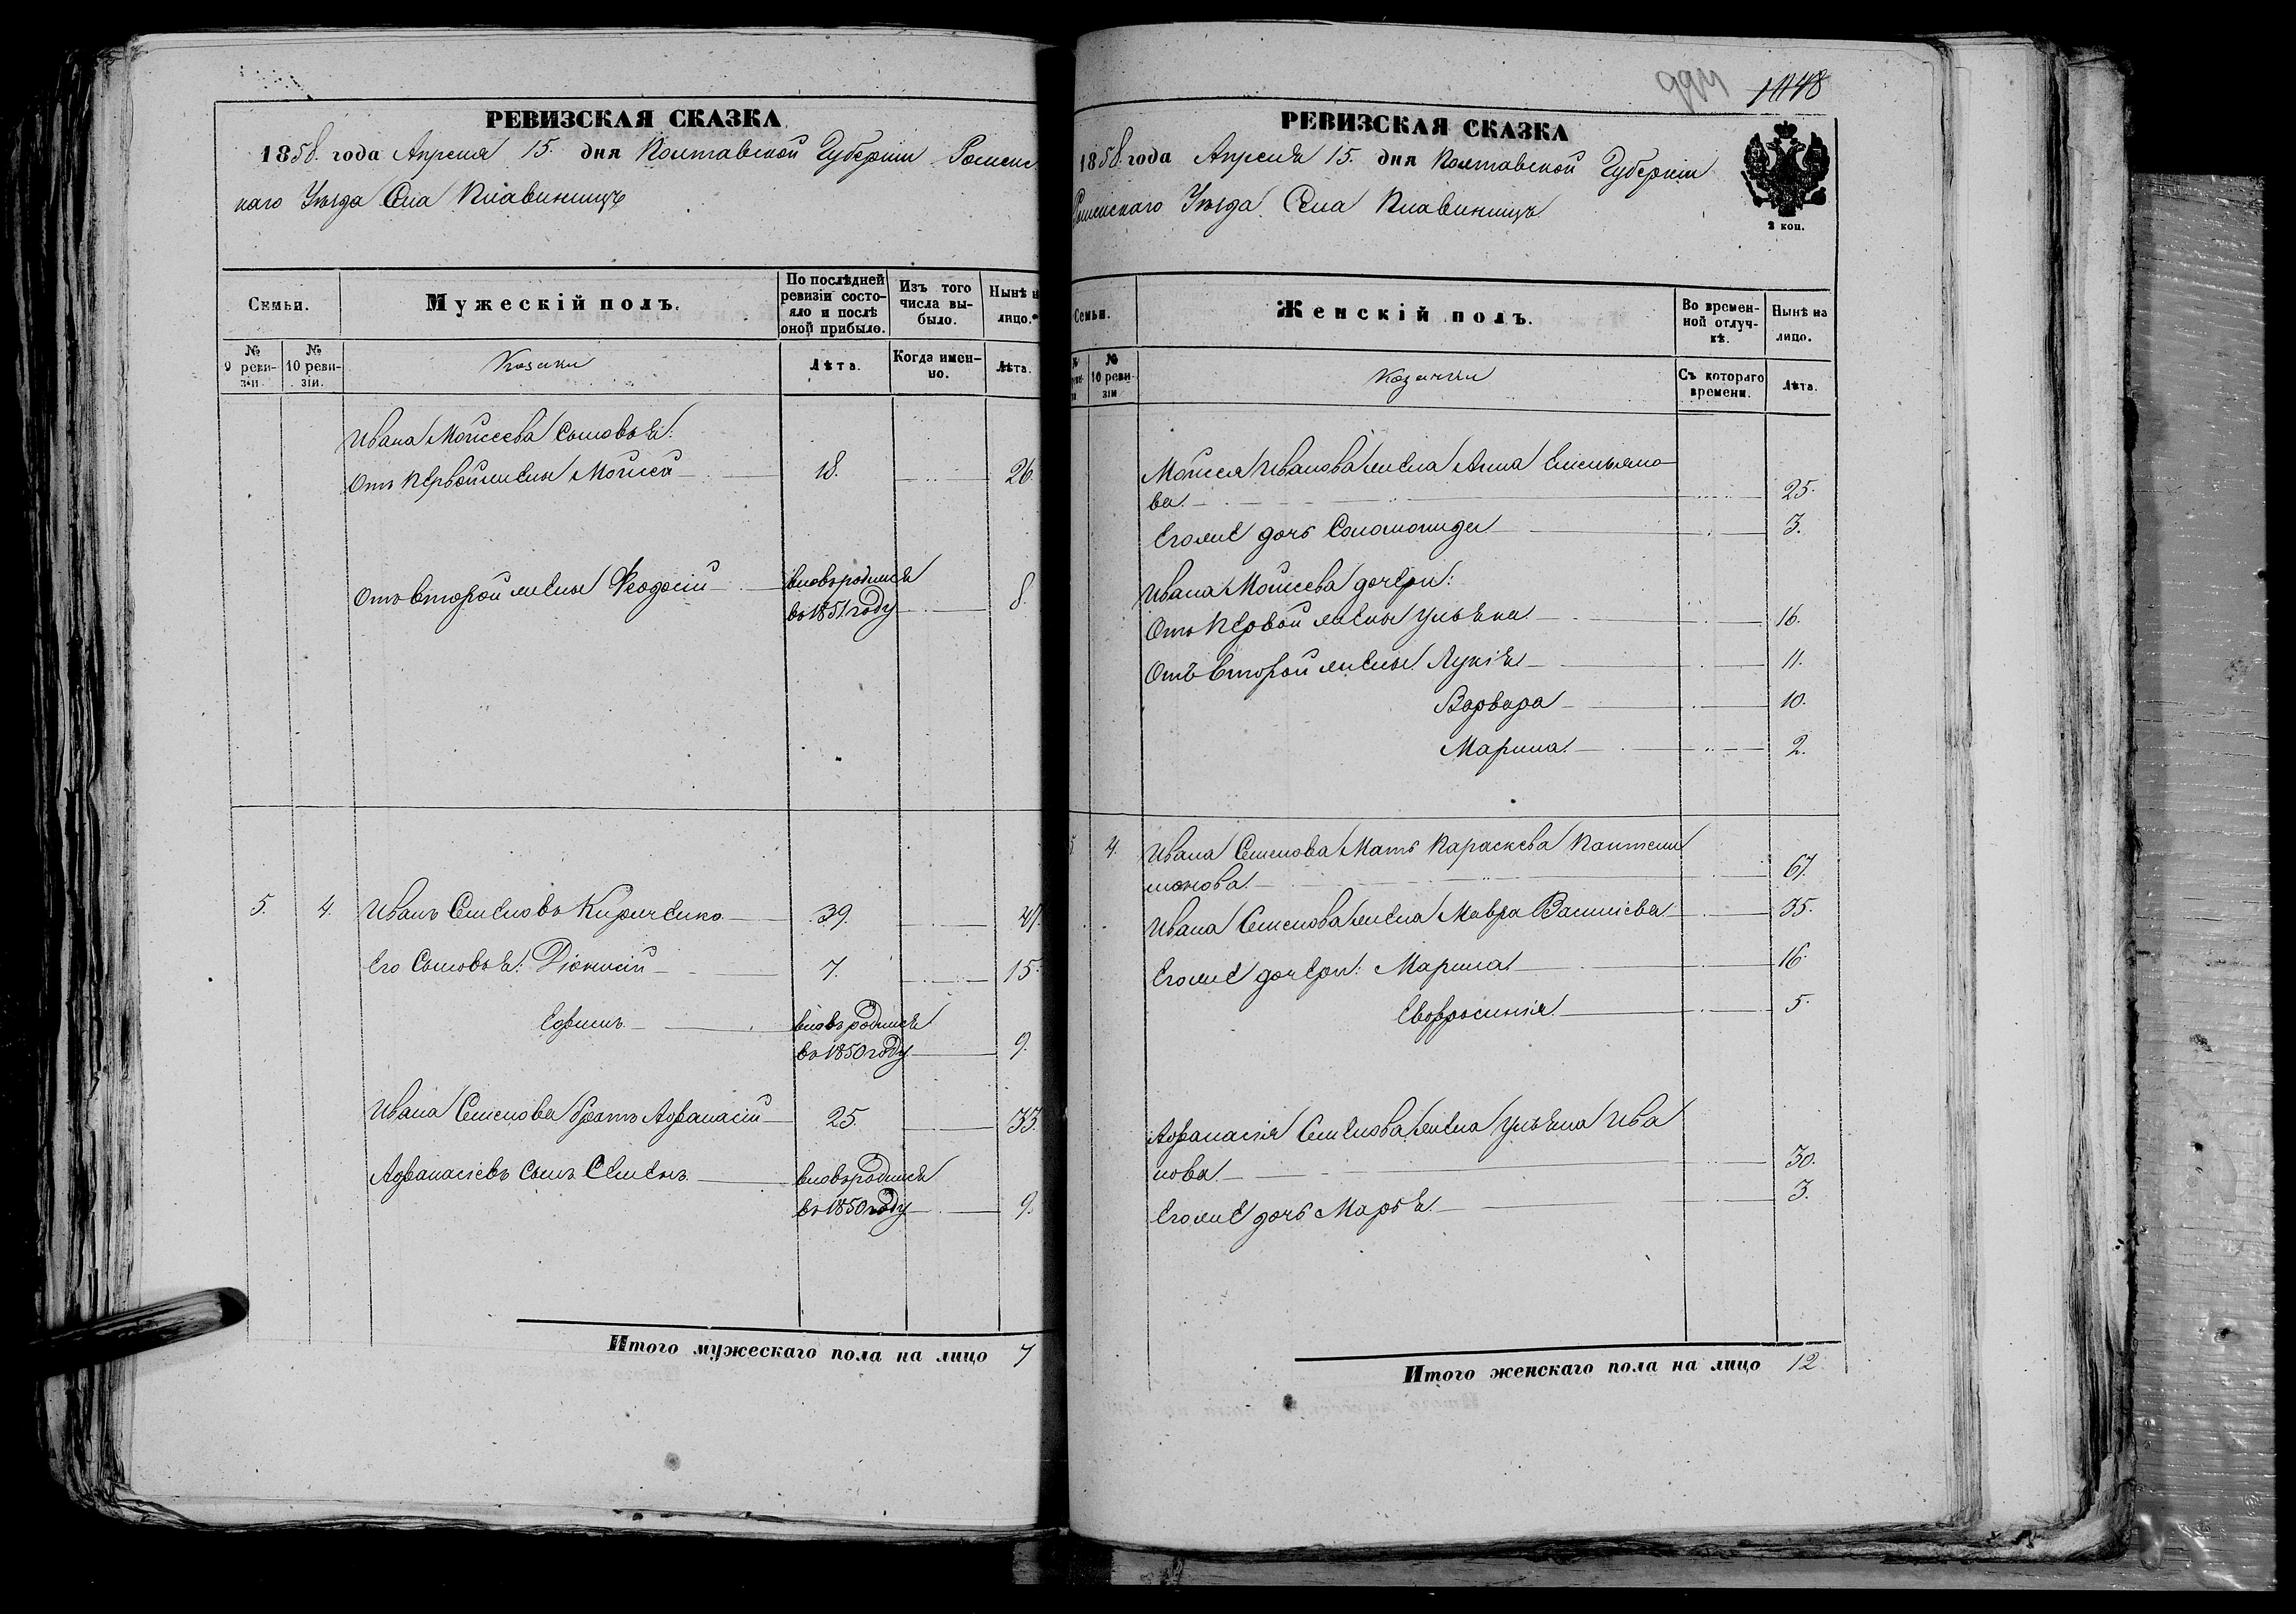 РЕВИЗСКАЯ СКАЗКА
1858. года Апреля 15. дня Полтавской Губерніи Роменс
каго Уѣзда Села
Семьи.
Мужескій полъ.
По послѣдней ревизіи состояло и послѣ оной прибыло.
Изъ того числа выбыло.
Нынѣ н лицо.
№ 9 ревизіи.
№ 10 ревизіи.
Козаки
Лѣта.
Когда именно.
Лѣта.
Ивана Моисеева Сыновья:
Отъ первой жены Моисей 18. 26.
Отъ второй жены Феодосій вновьродился
въ 1851 году 8.
5. 4. Иванъ Семеновъ Кириченко 39. 47.
Его Сыновья: Діонисій 7. 15.
Ефимъ вновь родился
въ 1850 году 9.
Ивана Семенова братъ Афанасій 25. 33.
Афанасіевъ сынъ Семенъ вновьродился
въ 1850 году 9.
Итого мужескаго пола на лицо 7
994 1048
РЕВИЗСКАЯ СКАЗКА
1858. года Апреля 15. дня Полтавской Губерніи
Роменскаго Уѣзда Села
2 коп.
Семьи.
Женскій полъ.
Во временной отлучкѣ.
Нынѣ на лицо.
№ 10 ревизіи
Козачки
Съ котораго времени.
Лѣта.
Моисея Иванова жена Анна Емельяно
ва. 25.
Егоже дочь Соломонида 3.
Ивана Моисеева дочери:
Отъ первой жены Ульяна 16.
Отъ второй жены Лукія 11.
Варвара 10.
Марина 2.
4. Ивана Семенова Мать Параскева Пантели
монова. 67.
Ивана Семенова жена Мавра Василіева 35.
Егоже дочери: Марина 16.
Евфросинія 5.
Афанасія Семенова жена Ульяна Ива
нова 30.
Егоже дочь Марья 3.
Итого женскаго пола на лицо 12